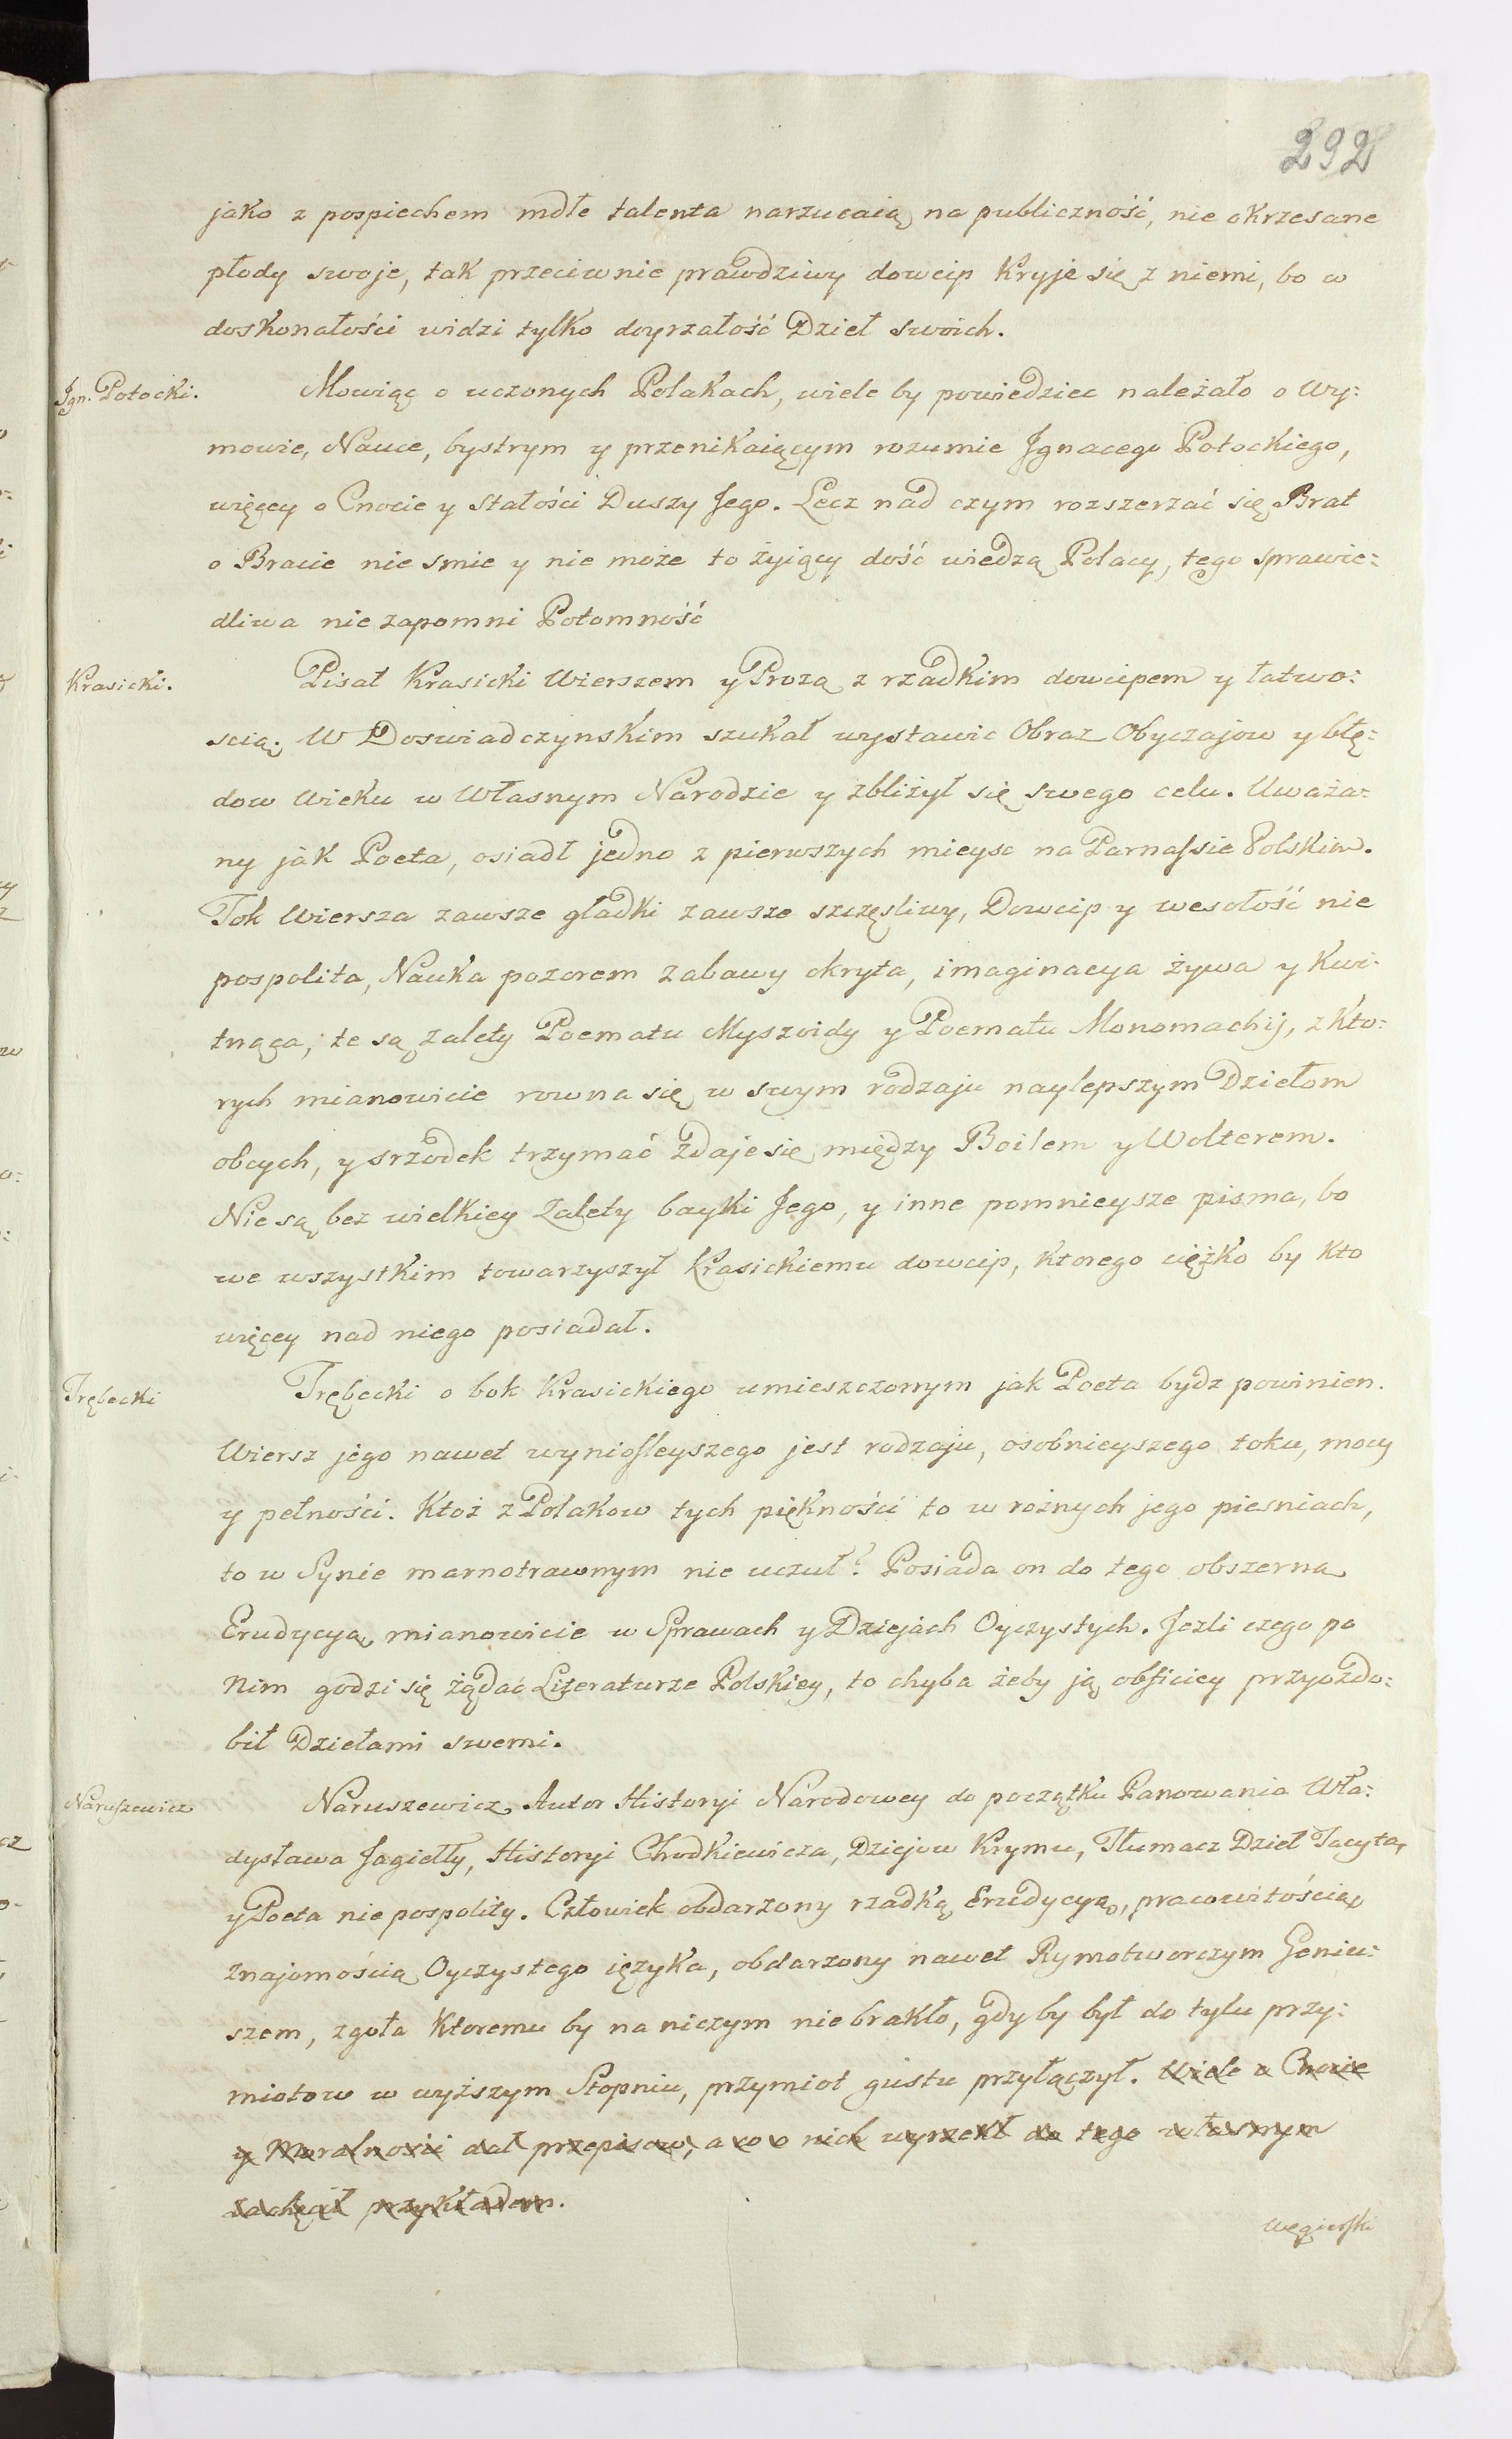 292
jako z pospiechem mdłe talenta narzucaią na publiczność, nie okrzesane
płody swoje, tak przeciwnie prawdziwy dowcip Kryje się z niemi, bo w
doskonałości widzi tylko doyrzałość Dzieł swoich.
Ign. Potocki.
Mowiąc o uczonych Polakach, wiele by powiedziec należało o Wy:
mowie, Nauce, bystrym y przenikaiącym rozumie Ignacego Potockiego,
więcey o Cnocie y Stałości Duszy Jego. Lecz nad czym rozszerzać się Brat
o Bracie nie smie y nie może to żyiący dość wiedzą Polacy, tego sprawie:
dliwa nie zapomni Potomność
Krasicki.
Pisał Krasicki Wierszem y Prozą z rzadkim dowcipem y łatwo:
scią. W Doswiadczynskim szukał wystawic Obraz Obyczajow y błę:
dow Wieku w Własnym Narodzie y zbliżył się swego celu. Uważa:
ny jak Poeta, osiadł jedno z pierwszych mieysc na Parnassie Polskim.
Tok Wiersza zawsze gładki zawsze szczęsliwy, Dowcip y wesołość nie
pospolita, Nauka pozorem zabawy okryta, imaginacya żywa y Kwi:
tnąca, te są zalety Poematu Myszeidy y Poematu Monomachij, z Kto:
rych mianowicie rowna się w swym rodzaju naylepszym Dziełom
obcych, y srzodek trzymać zdaje się między Boilem y Wolterem.
Nie są bez wielkiey Zalety bayki Jego, y inne pomnieysze pisma, bo
we wszystkim towarzyszył Krasickiemu dowcip, Ktorego ciężko by Kto
więcey nad niego posiadał.
Trębecki
Trębecki o bok Krasickiego umieszczonym jak Poeta bydz powinien.
Wiersz jego nawet wyniosleyszego jest rodzaju, osobnieyszego toku, mocy
y pełności. Ktoż z Polakow tych piękności to w rożnych jego piesniach,
to w Synie marnotrawnym nie uczuł? Posiada on do tego obszerną
Erudycyą, mianowicie w Sprawach y Dziejach Oyczystych. Jezli czego po
Nim godzi się żądać Literaturze Polskiey, to chyba żeby ją obficiey przyozdo:
bił Dziełami swemi.
Naruszewicz
Naruszewicz, Autor Historyi Narodowey do początku Panowania Wła:
dysława Jagiełły, Historyi Chodkiewicza, Dziejow Krymu, Tłumacz Dzieł Tacyta,
y Poeta nie pospolity. Człowiek obdarzony rzadką Erudycyą, pracowitością
Znajomością Oyczystego ięzyka, obdarzony nawet Rymotworczym Geniu:
szem, zgoła Ktoremu by na niczym nie brakło, gdy by był do tylu przy:
miotow w wyższym Stopniu, przymiot gustu przyłączył. Wiele o Cnocie
y Moralnosci dał przepisow, a co o nich wyrzekł do tego własnym
zachęcił przykładem.
Węgierski